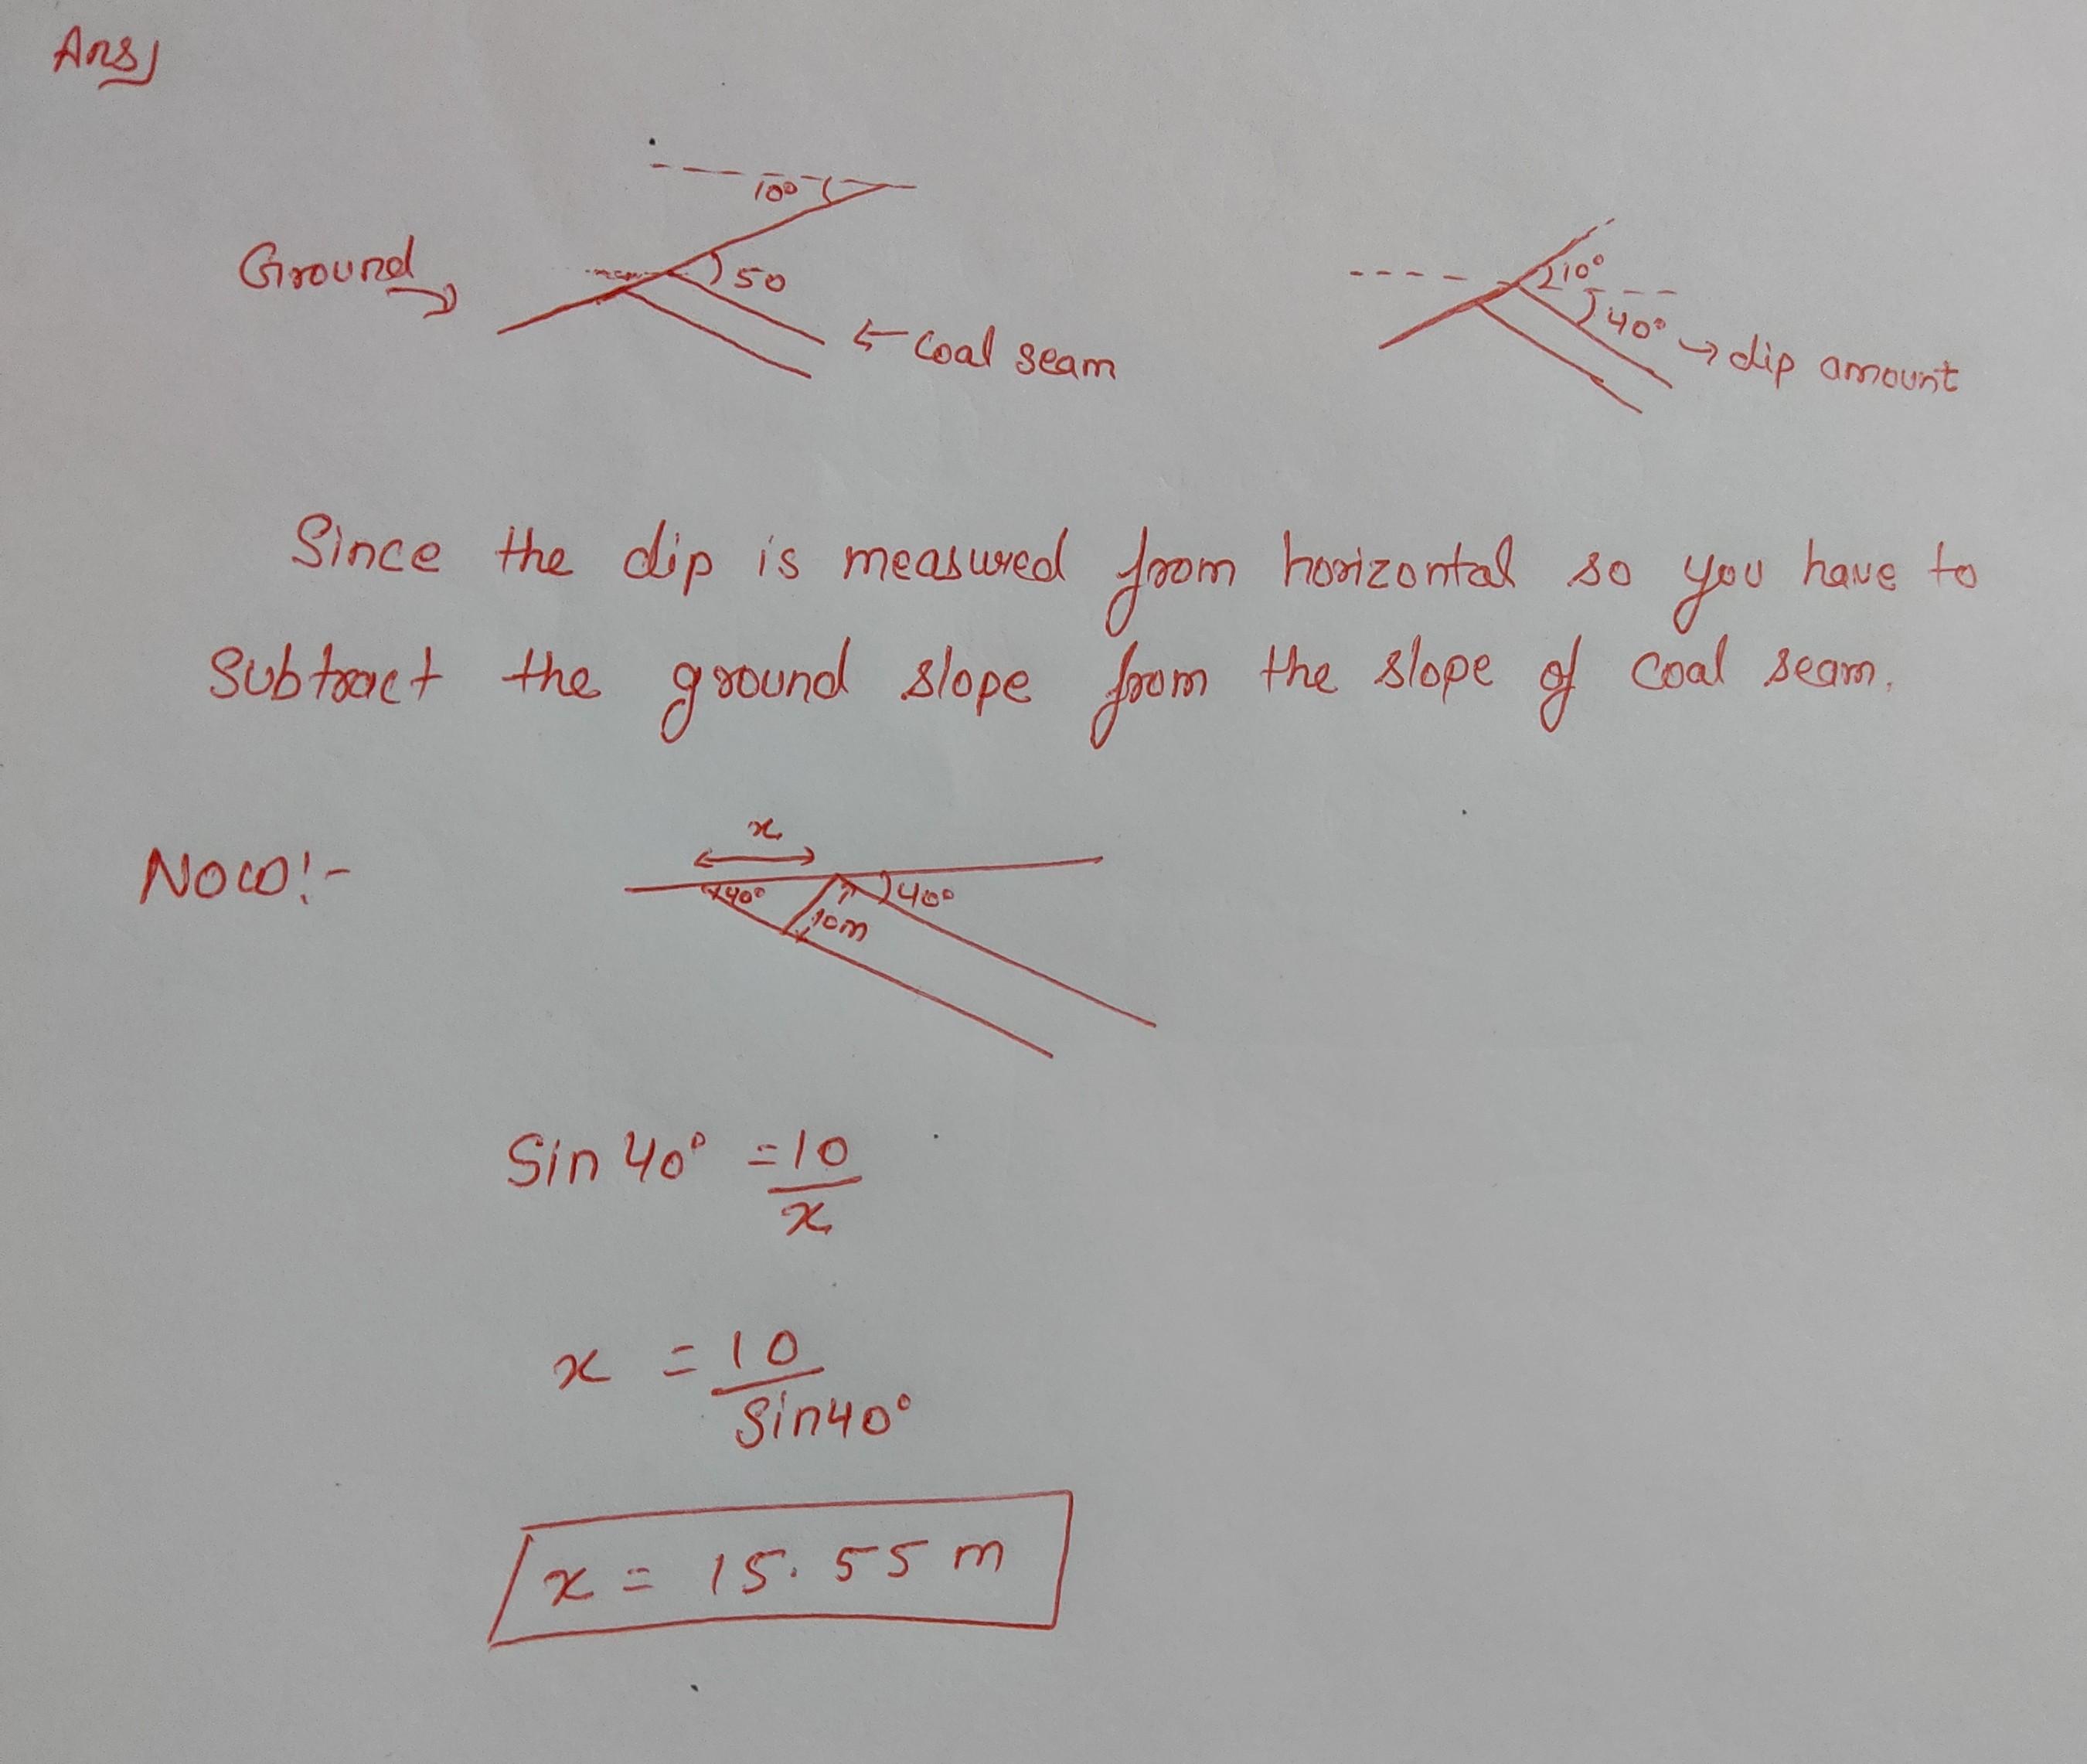 Ans)
10°
Ground
50
coal seam
10°
40° → dip amount
Since the dip is measured from horizontal so you have to
subtract the ground slope from the slope of coal seam.
Now:-
x
40°
10m
40°
Sin 40° = 10
x
x = 10
Sin40°
x = 15.55 m